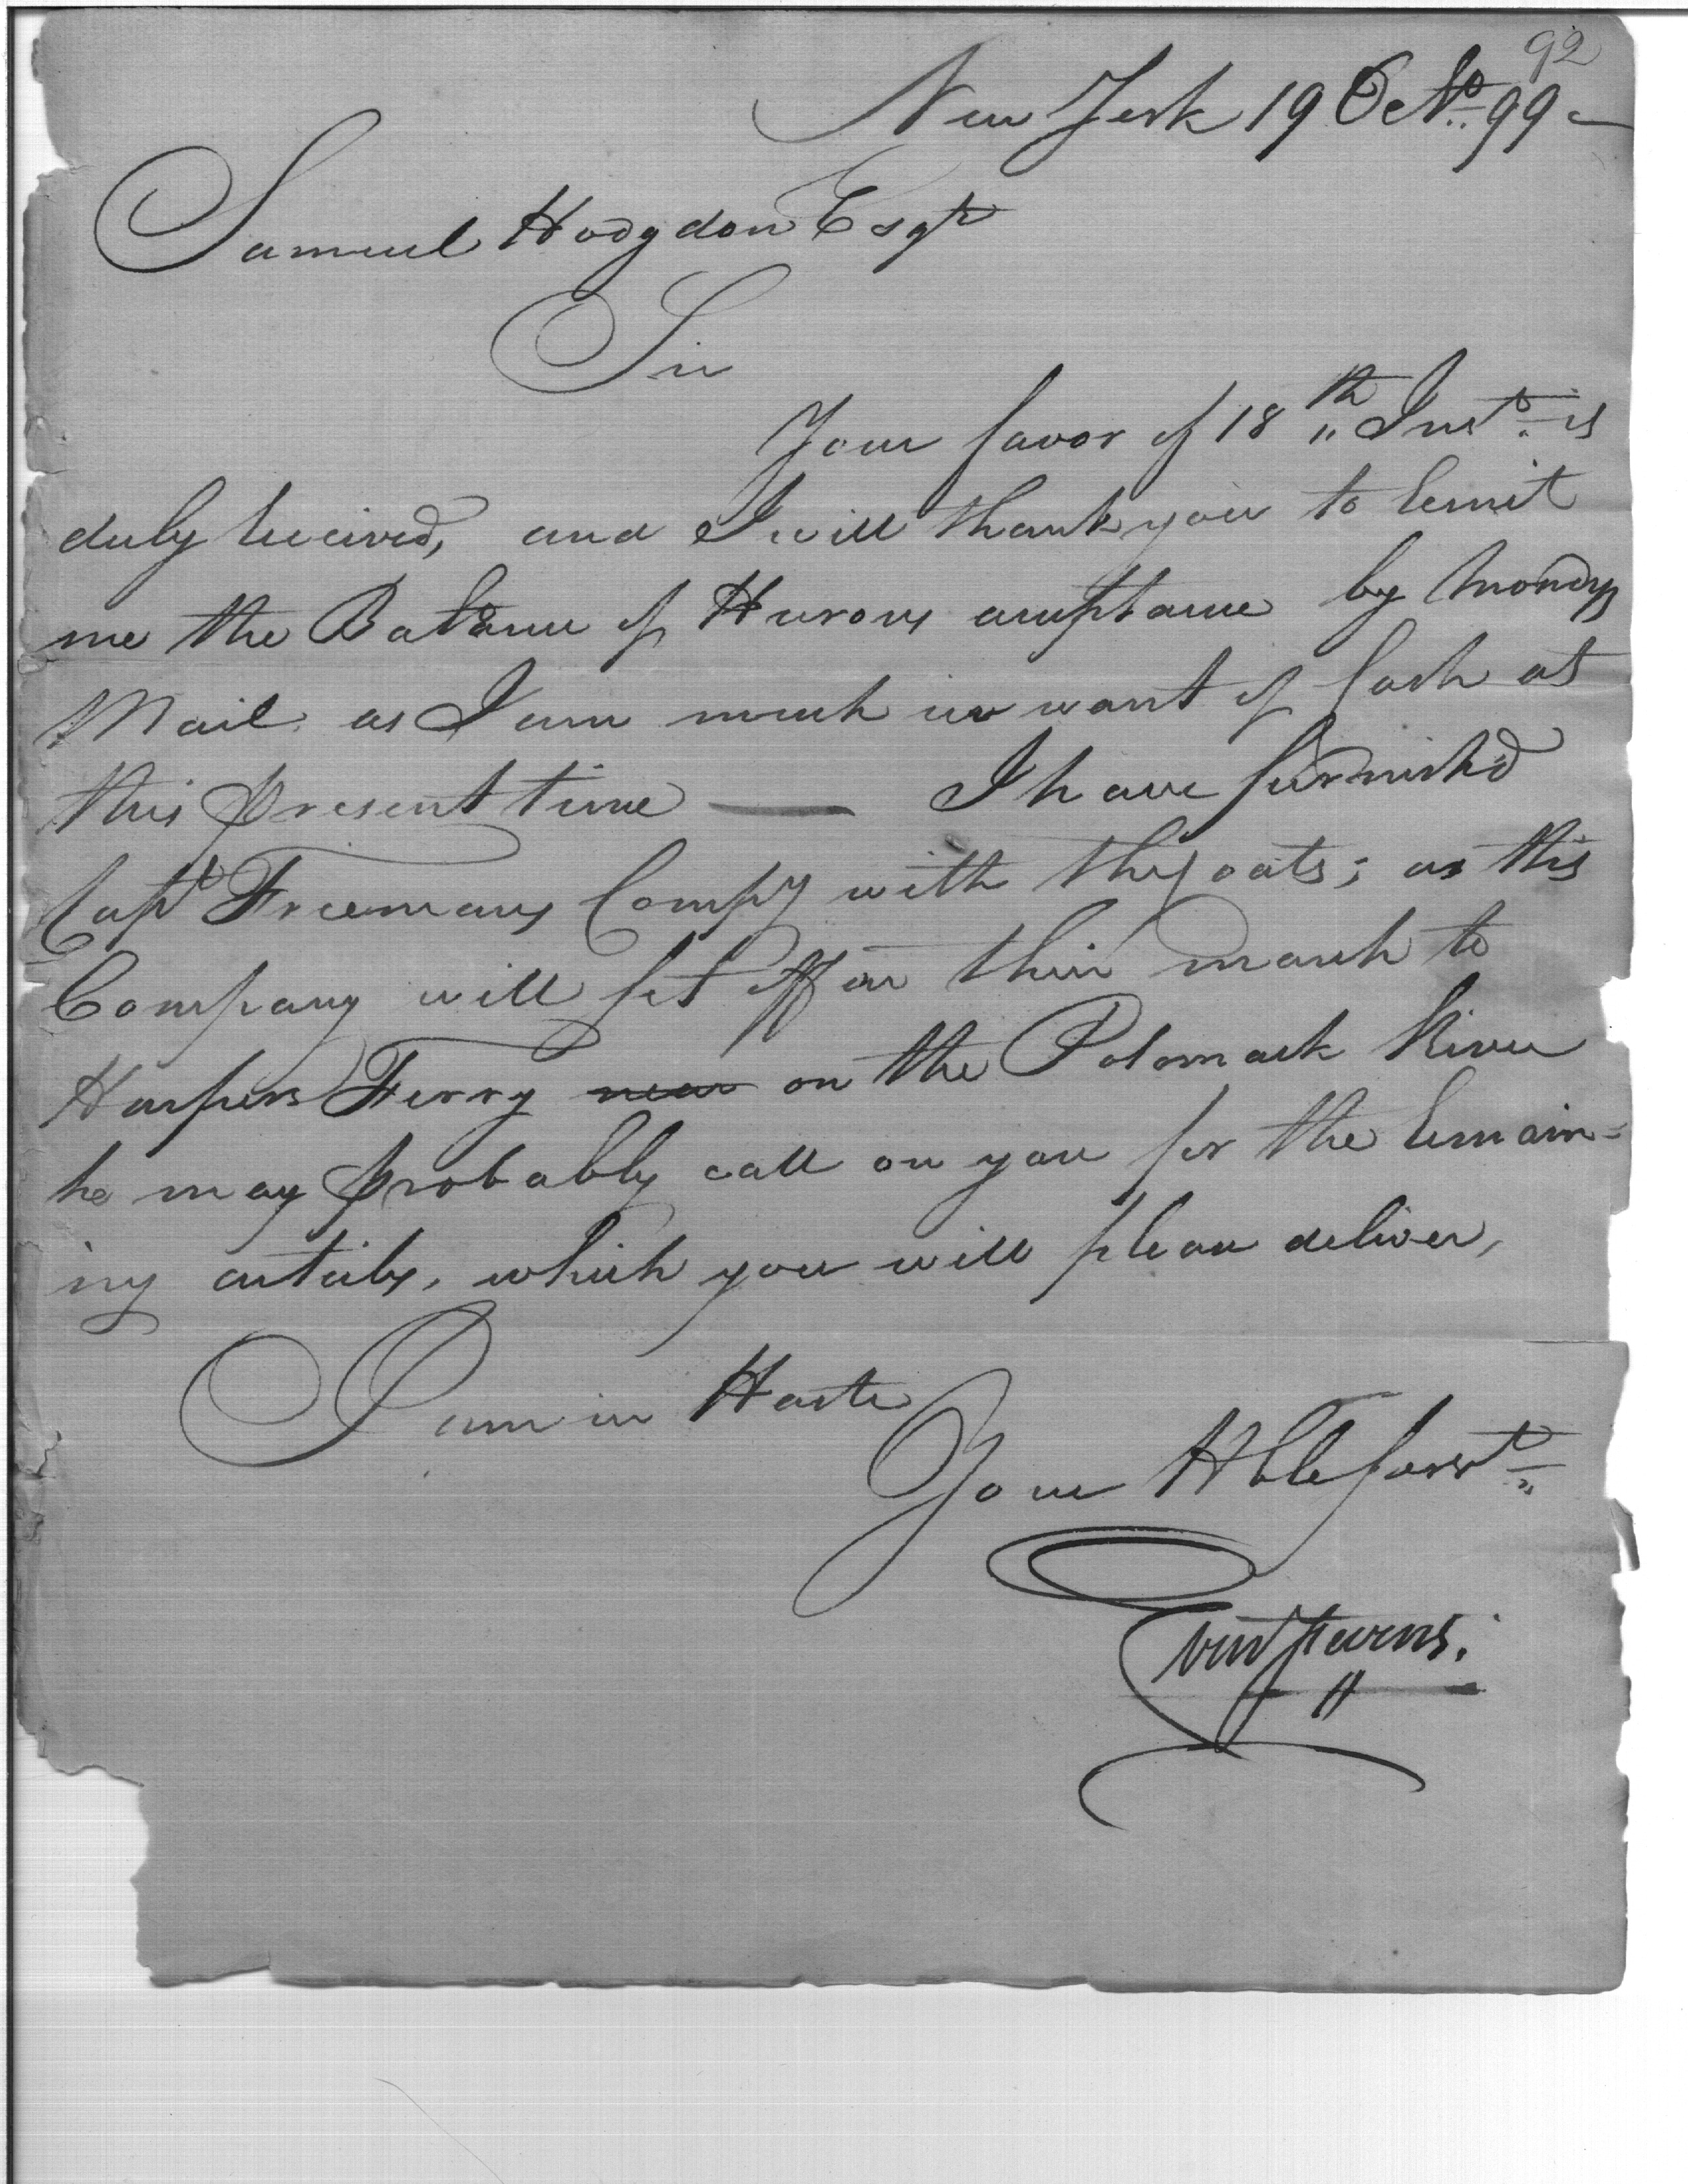 92
New York 19 Octo. 99 -
Samuel Hodgdon Esqr
Sir
Your favor of 18th Inst. is
duly Received, and I will thank you to Remit
me the Balance of acceptance by Mondys
Mail as I am much in want of Cash at
this present time — I have furnish'd
Capt Freemans Compy with ther Coats; as this
Company will set off on their march to
Harpers Ferry near on the Potomack River
he may probably call on you for the Remain=
ing articles, which you will please deliver,
I am in Haste
Your Hble servt